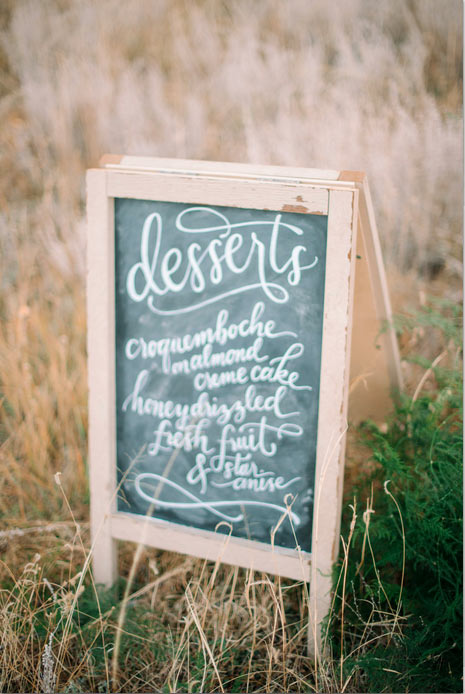 desserts
croquembouche
on almond
creme cake
honey drizzled
fresh fruit
& star
anise